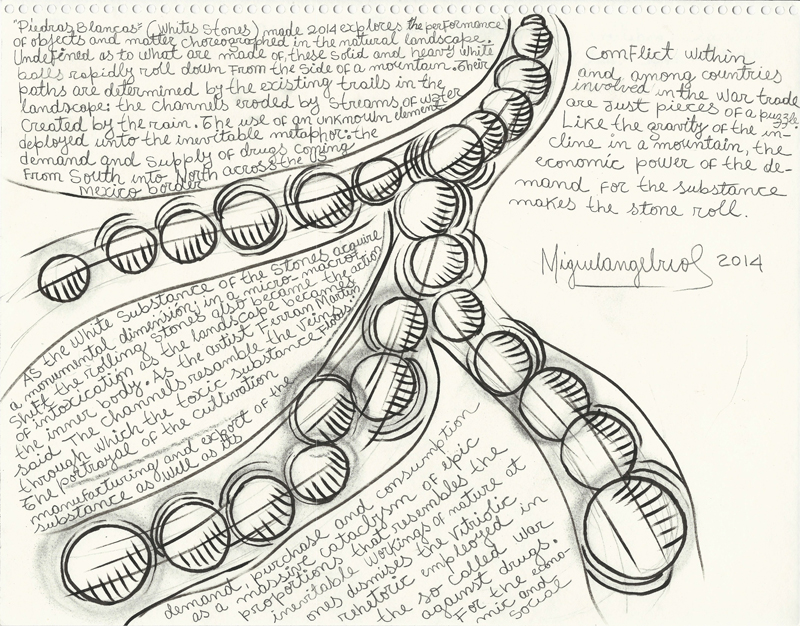 "Piedras Blancas" (Whites Stones) made 2014 explores the performance
of objects and matter choreographed in the natural landscape.
Undefined as to what are made of these solid and heavy white
balls rapidly roll down from the side of a mountain. Their
paths are determined by the existing trails in the
landscape: the channels eroded by streams of water
created by the rain. The use of an unknown element
deployed unto the inevitable metaphor: the
demand and supply of drugs coming
from South into North across the US
Mexico border
As the white substance of the stones acquire
a monumental dimension; in a micro-macro
shift the rolling stones also became the action
of intoxication as the landscape becomes
the inner body. As the artist Ferran Martin
said "The channels resemble the veins
through which the toxic substance floods."
The portrayal of the cultivation
manufacturing and export of the
substance as well as its
demand, purchase and consumption
as a massive cataclysm of epic
proportions that resembles the
inevitable workings of nature at
ones dismises the vitriolic
rhetoric employed in
the so called war
against drugs.
For the econo-
mic and
social
Comflict within
and among countries
involved in the war trade
are just pieces of a puzzle.
Like the gravity of the in-
cline in a mountain, the
economic power of the de-
mand for the substance
makes the stone roll.
Miguelangelruiz 2014